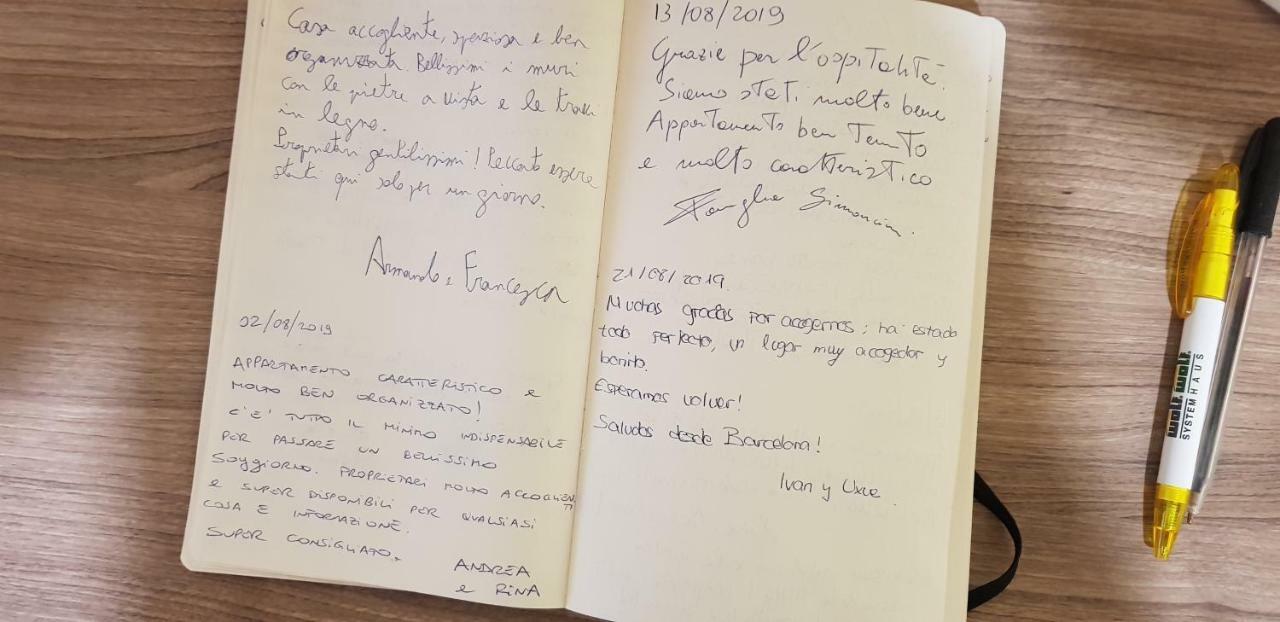 Casa accogliente, spaziosa e ben
organizzata. Bellissimi i muri
con le pietre a vista e le travi
in legno.
Proprietari gentilissimi! Peccato essere
stati qui solo per un giorno.
Armando e Francesca
02/08/2019
APPARTAMENTO CARATTERISTICO e
MOLTO BEN ORGANIZZATO!
C'E' TUTTO IL MINIMO INDISPENSABILE
PER PASSARE UN BELLISSIMO
SOGGIORNO. PROPRIETARI MOLTO ACCOGLIENTI
e SUPER DISPONIBILI PER QUALSIASI
COSA E INFORMAZIONE.
SUPER CONSIGLIATO.
ANDREA
e RINA
13/08/2019
Grazie per l'ospitalità.
Siamo stati molto bene
Appartamento ben tenuto
e molto caratteristico
Famiglia Simoncini
21/08/2019
Muchas gracias por acogernos; ha estado
todo perfecto, un lugar muy acogedor y
bonito.
Esperamos volver!
Saludos desde Barcelona!
Ivan y
wolf
SYSTEMHAUS